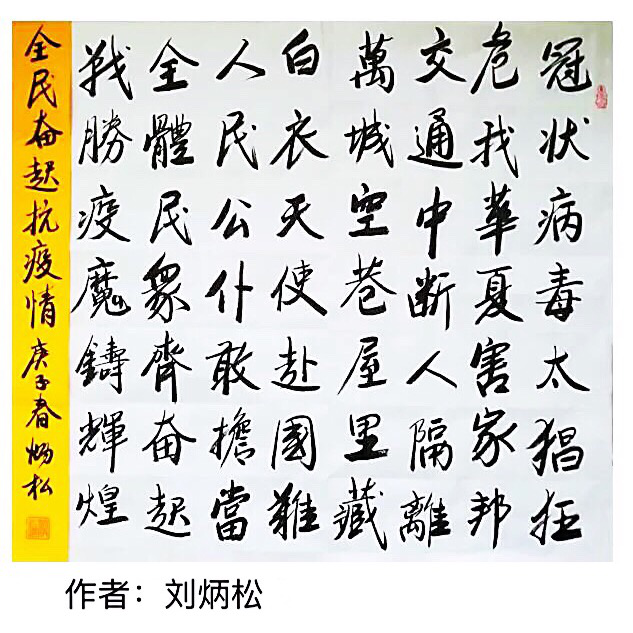 冠状病毒太猖狂
危我華夏害家邦
交通中断人隔離
萬城空巷屋里藏
白衣天使赴國難
人民公仆敢擔當
全體民眾齊奋起
戰勝疫魔鑄輝煌
全民奋起抗疫情 庚子春 炳松
作者：刘炳松